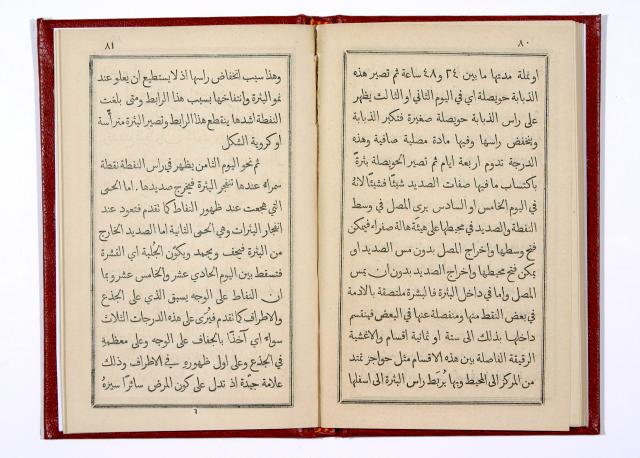 ٨٠
او نملة مدتها ما بين ٢٤ و٤٨ ساعة ثم تصير هذه
الذبابة حويصلة اي في اليوم الثاني او الثالث يظهر
على راس الذبابة حويصلة صغيرة فتكبر الذبابة
وينخفض راسها وفيها مادة مصلية صافية وهذه
الدرجة تدوم اربعة ايام ثم تصير الحويصلة بثرةً
باكتساب ما فيها صفات الصديد شيئًا فشيئًا لانهُ
في اليوم الخامس او السادس يرى المصل في وسط
النفطة والصديد في محيطها على هيئة هالة صفراء فيمكن
فتح وسطها واخراج المصل بدون مس الصديد او
يمكن فتح محيطها واخراج الصديد بدون ان يمس
المصل واما في داخل البثرة فالبشرة ملتصقة بالادمة
في بعض النقط منها ومنفصلة عنها في البعض فينقسم
داخلها بذلك الى ستة او ثمانية اقسام والاغشية
الرقيقة الفاصلة بين هذه الاقسام مثل حواجز تمتد
من المركز الى المحيط وبها يُربَط راس البثرة الى اسفلها
٨١
وهذا سبب انخفاض راسها اذ لا يستطيع ان يعلو عند
نمو البثرة وانتفاخها بسبب هذا الرابط ومتى بلغت
النفطة اشدها ينقطع هذا الرابط وتصير البثرة متراّسة
او كروية الشكل
ثم نحو اليوم الثامن يظهر في راس النفطة نقطة
سمراء عندها تنفجر البثرة فيخرج صديدها. اما الحمى
التي هجعت عند ظهور النفاط كما تقدم فتعود عند
انفجار البثرات وهي الحمى الثانية اما الصديد الخارج
من البثرة فيجف ويجمد ويكوّن الجلبة اي القشرة
فتسقط بين اليوم الحادي عشر والخامس عشر وبما
ان النفاط على الوجه يسبق الذي على الجذع
والاطراف كما تقدم فيُرى على هذه الدرجات الثلاث
سواء اي آخذًا بالجفاف على الوجه وعلى معظمهِ
في الجذع وعلى اول ظهوره في الاطراف وذلك
علامة جيدة اذ تدل على كون المرض سائرًا سيرهُ
٦